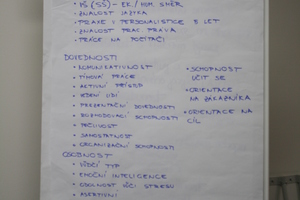 • VŠ (SŠ) - EK / HUM. SMĚR
• ZNALOST JAZYKA
• PRAXE V PERSONALISTICE 5 LET
• ZNALOST PRAC. PRÁVA
• PRÁCE NA POČÍTAČI
DOVEDNOSTI
• KOMUNIKATIVNOST
• TÝMOVÁ PRÁCE
• AKTIVNÍ PŘÍSTUP
• VEDENÍ LIDÍ
• PREZENTAČNÍ DOVEDNOSTI
• ROZHODOVACÍ SCHOPNOSTI
• PEČLIVOST
• SAMOSTATNOST
• ORGANIZAČNÍ SCHOPNOSTI
• SCHOPNOST
UČIT SE
• ORIENTACE
NA ZÁKAZNÍKA
• ORIENTACE NA
CÍL
OSOBNOST
• VŮDČÍ TYP
• EMOČNÍ INTELIGENCE
• ODOLNOST VŮČI STRESU
• ASERTIVNÍ